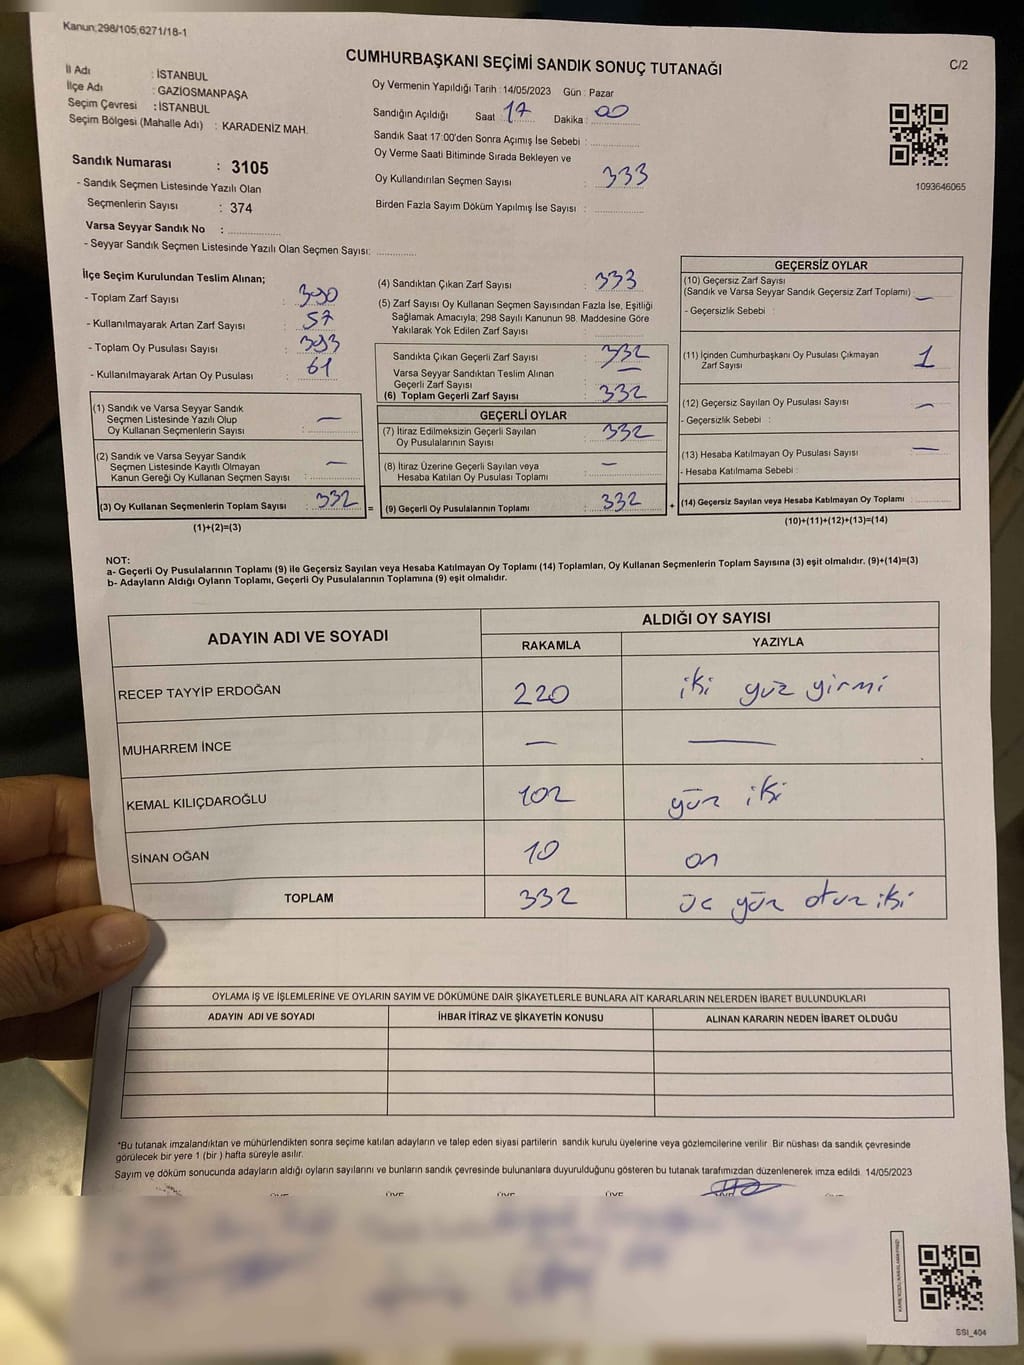 Kanun;298/105;6271/18-1
CUMHURBAŞKANI SEÇİMİ SANDIK SONUÇ TUTANAĞI
C/2
İl Adı : İSTANBUL
İlçe Adı : GAZİOSMANPAŞA
Seçim Çevresi : İSTANBUL
Seçim Bölgesi (Mahalle Adı) : KARADENİZ MAH.
Oy Vermenin Yapıldığı Tarih : 14/05/2023 Gün : Pazar
Sandığın Açıldığı Saat : 17 Dakika : 00
Sandık Saat 17:00'den Sonra Açımış İse Sebebi :
Oy Verme Saati Bitiminde Sırada Bekleyen ve
Oy Kullandırılan Seçmen Sayısı : 333
Birden Fazla Sayım Döküm Yapılmış İse Sayısı :
1093646065
Sandık Numarası : 3105
- Sandık Seçmen Listesinde Yazılı Olan
Seçmenlerin Sayısı : 374
Varsa Seyyar Sandık No :
- Seyyar Sandık Seçmen Listesinde Yazılı Olan Seçmen Sayısı:
İlçe Seçim Kurulundan Teslim Alınan;
- Toplam Zarf Sayısı : 390
- Kullanılmayarak Artan Zarf Sayısı : 57
- Toplam Oy Pusulası Sayısı : 393
- Kullanılmayarak Artan Oy Pusulası : 61
(1) Sandık ve Varsa Seyyar Sandık
Seçmen Listesinde Yazılı Olup
Oy Kullanan Seçmenlerin Sayısı : —
(2) Sandık ve Varsa Seyyar Sandık
Seçmen Listesinde Kayıtlı Olmayan
Kanun Gereği Oy Kullanan Seçmen Sayısı : —
(3) Oy Kullanan Seçmenlerin Toplam Sayısı : 332 =
(1)+(2)=(3)
(4) Sandıktan Çıkan Zarf Sayısı : 333
(5) Zarf Sayısı Oy Kullanan Seçmen Sayısından Fazla İse, Eşitliği
Sağlamak Amacıyla; 298 Sayılı Kanunun 98. Maddesine Göre
Yakılarak Yok Edilen Zarf Sayısı :
Sandıkta Çıkan Geçerli Zarf Sayısı : 332
Varsa Seyyar Sandıktan Teslim Alınan
Geçerli Zarf Sayısı : —
(6) Toplam Geçerli Zarf Sayısı : 332
GEÇERLİ OYLAR
(7) İtiraz Edilmeksizin Geçerli Sayılan
Oy Pusulalarının Sayısı : 332
(8) İtiraz Üzerine Geçerli Sayılan veya
Hesaba Katılan Oy Pusulası Toplamı : —
(9) Geçerli Oy Pusulalarının Toplamı : 332 +
GEÇERSİZ OYLAR
(10) Geçersiz Zarf Sayısı
(Sandık ve Varsa Seyyar Sandık Geçersiz Zarf Toplamı) : —
- Geçersizlik Sebebi :
(11) İçinden Cumhurbaşkanı Oy Pusulası Çıkmayan
Zarf Sayısı : 1
(12) Geçersiz Sayılan Oy Pusulası Sayısı : —
- Geçersizlik Sebebi :
(13) Hesaba Katılmayan Oy Pusulası Sayısı : —
- Hesaba Katılmama Sebebi :
(14) Geçersiz Sayılan veya Hesaba Katılmayan Oy Toplamı :
(10)+(11)+(12)+(13)=(14)
NOT:
a- Geçerli Oy Pusulalarının Toplamı (9) ile Geçersiz Sayılan veya Hesaba Katılmayan Oy Toplamı (14) Toplamları, Oy Kullanan Seçmenlerin Toplam Sayısına (3) eşit olmalıdır. (9)+(14)=(3)
b- Adayların Aldığı Oyların Toplamı, Geçerli Oy Pusulalarının Toplamına (9) eşit olmalıdır.
ADAYIN ADI VE SOYADI
ALDIĞI OY SAYISI
RAKAMLA YAZIYLA
RECEP TAYYİP ERDOĞAN 220 iki yüz yirmi
MUHARREM İNCE — —
KEMAL KILIÇDAROĞLU 102 yüz iki
SİNAN OĞAN 10 on
TOPLAM 332 üç yüz otuz iki
OYLAMA İŞ VE İŞLEMLERİNE VE OYLARIN SAYIM VE DÖKÜMÜNE DAİR ŞİKAYETLERLE BUNLARA AİT KARARLARIN NELERDEN İBARET BULUNDUKLARI
ADAYIN ADI VE SOYADI İHBAR İTİRAZ VE ŞİKAYETİN KONUSU ALINAN KARARIN NEDEN İBARET OLDUĞU
*Bu tutanak imzalandıktan ve mühürlendikten sonra seçime katılan adayların ve talep eden siyasi partilerin sandık kurulu üyelerine veya gözlemcilerine verilir. Bir nüshası da sandık çevresinde
görülecek bir yere 1 (bir ) hafta süreyle asılır.
Sayım ve döküm sonucunda adayların aldığı oyların sayılarını ve bunların sandık çevresinde bulunanlara duyurulduğunu gösteren bu tutanak tarafımızdan düzenlenerek imza edildi. 14/05/2023
SSI_404